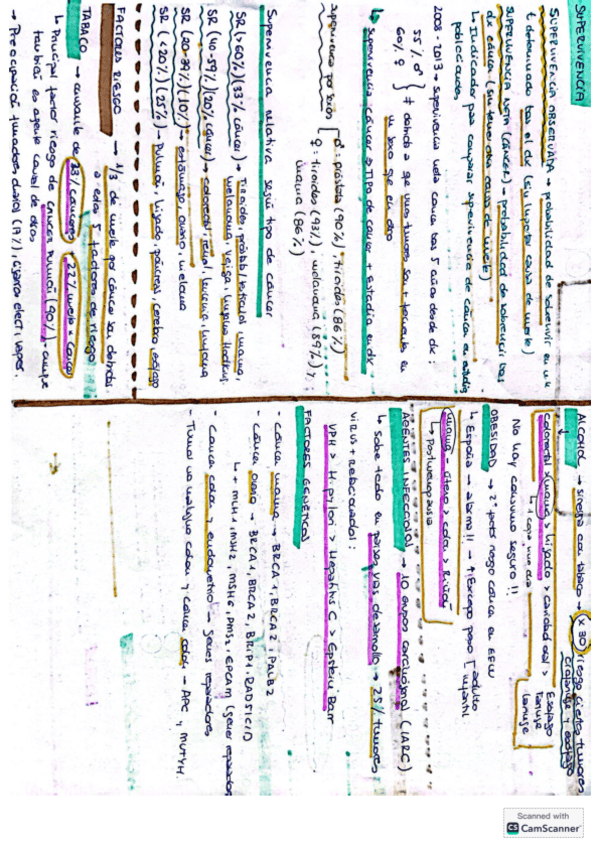 SUPERVIVENCIA
SUPERVIVENCIA OBSERVADA → probabilidad de sobrevivir en un
t determinado tras el dx (sin importar causa de muerte)
SUPERVIVENCIA NETA (CÁNCER) → probabilidad de sobrevivir tras
(sin tener otras causas de muerte)
↳ Indicador para comparar supervivencia de cáncer en
poblaciones
2008-2013 → supervivencia neta cáncer tras 5 años desde dx:
55% ♂
60% ♀
debido a que unos tumores son + frecuente en
un sexo que en otro
↳ Supervivencia cáncer → TIPO de cáncer + estadio en dx
supervivencia por sexo
♂: próstata (90%), tiroides (86%)
♀: tiroides (93%), melanoma (89%),
mama (86%)
Supervivencia relativa según tipo de cáncer
SR (>60%) (33% cáncer) → Tiroides, próstata, testículo, mama,
melanoma, vejiga, linfoma Hodking,
SR (40-59%) (20% cáncer) → colorectal, renal, leucemia, linfoma
SR (20-39%) (10%) → estómago, ovario, mieloma
SR (<20%) (25%) → Pulmón, hígado, páncreas, cerebro, esófago
FACTORES RIESGO → 1/3 de muerte por cáncer son debidos
a estos 5 factores de riesgo
TABACO → causante de 33% cánceres y 22% muerte x cáncer
↳ Principal factor riesgo de cáncer pulmón (90%), aunque
también es agente causal de otros
→ Preocupación fumadores diarios (19%), cigarro elect, vaper.
ALCOHOL → sinergia con tabaco → (x30) riesgo ciertos tumores
orofaringe y esófago
colorectal > mama > hígado > cavidad oral > Esófago
Faringe
Laringe
↳ 1 copa vino día
No hay consumo seguro!!
OBESIDAD → 2º factor riesgo cáncer en EEUU
↳ España → alarma!! → ↑ Exceso peso [adulto
infantil
mama - útero > colon > riñón
↳ Postmenopausia
AGENTES INFECCIOSOS → 10 grupo carcinógenos (IARC)
↳ Sobre todo en países vías desarrollo → 25% tumores
virus + relacionados:
VPH > H. pylori > Hepatitis C > Epstein Barr
FACTORES GENÉTICOS
- Cáncer mama → BRCA1, BRCA2, PALB2
- Cáncer ovario → BRCA1, BRCA2, BRIP1, RAD51C/D
↳ + MLH1, MSH2, MSH6, PMS2, EPCAM (genes reparadores
- Cáncer colon y endometrio → genes reparadores
- Tumor no maligno colon y cáncer colon → APC, MUTYH.
Scanned with
CS CamScanner